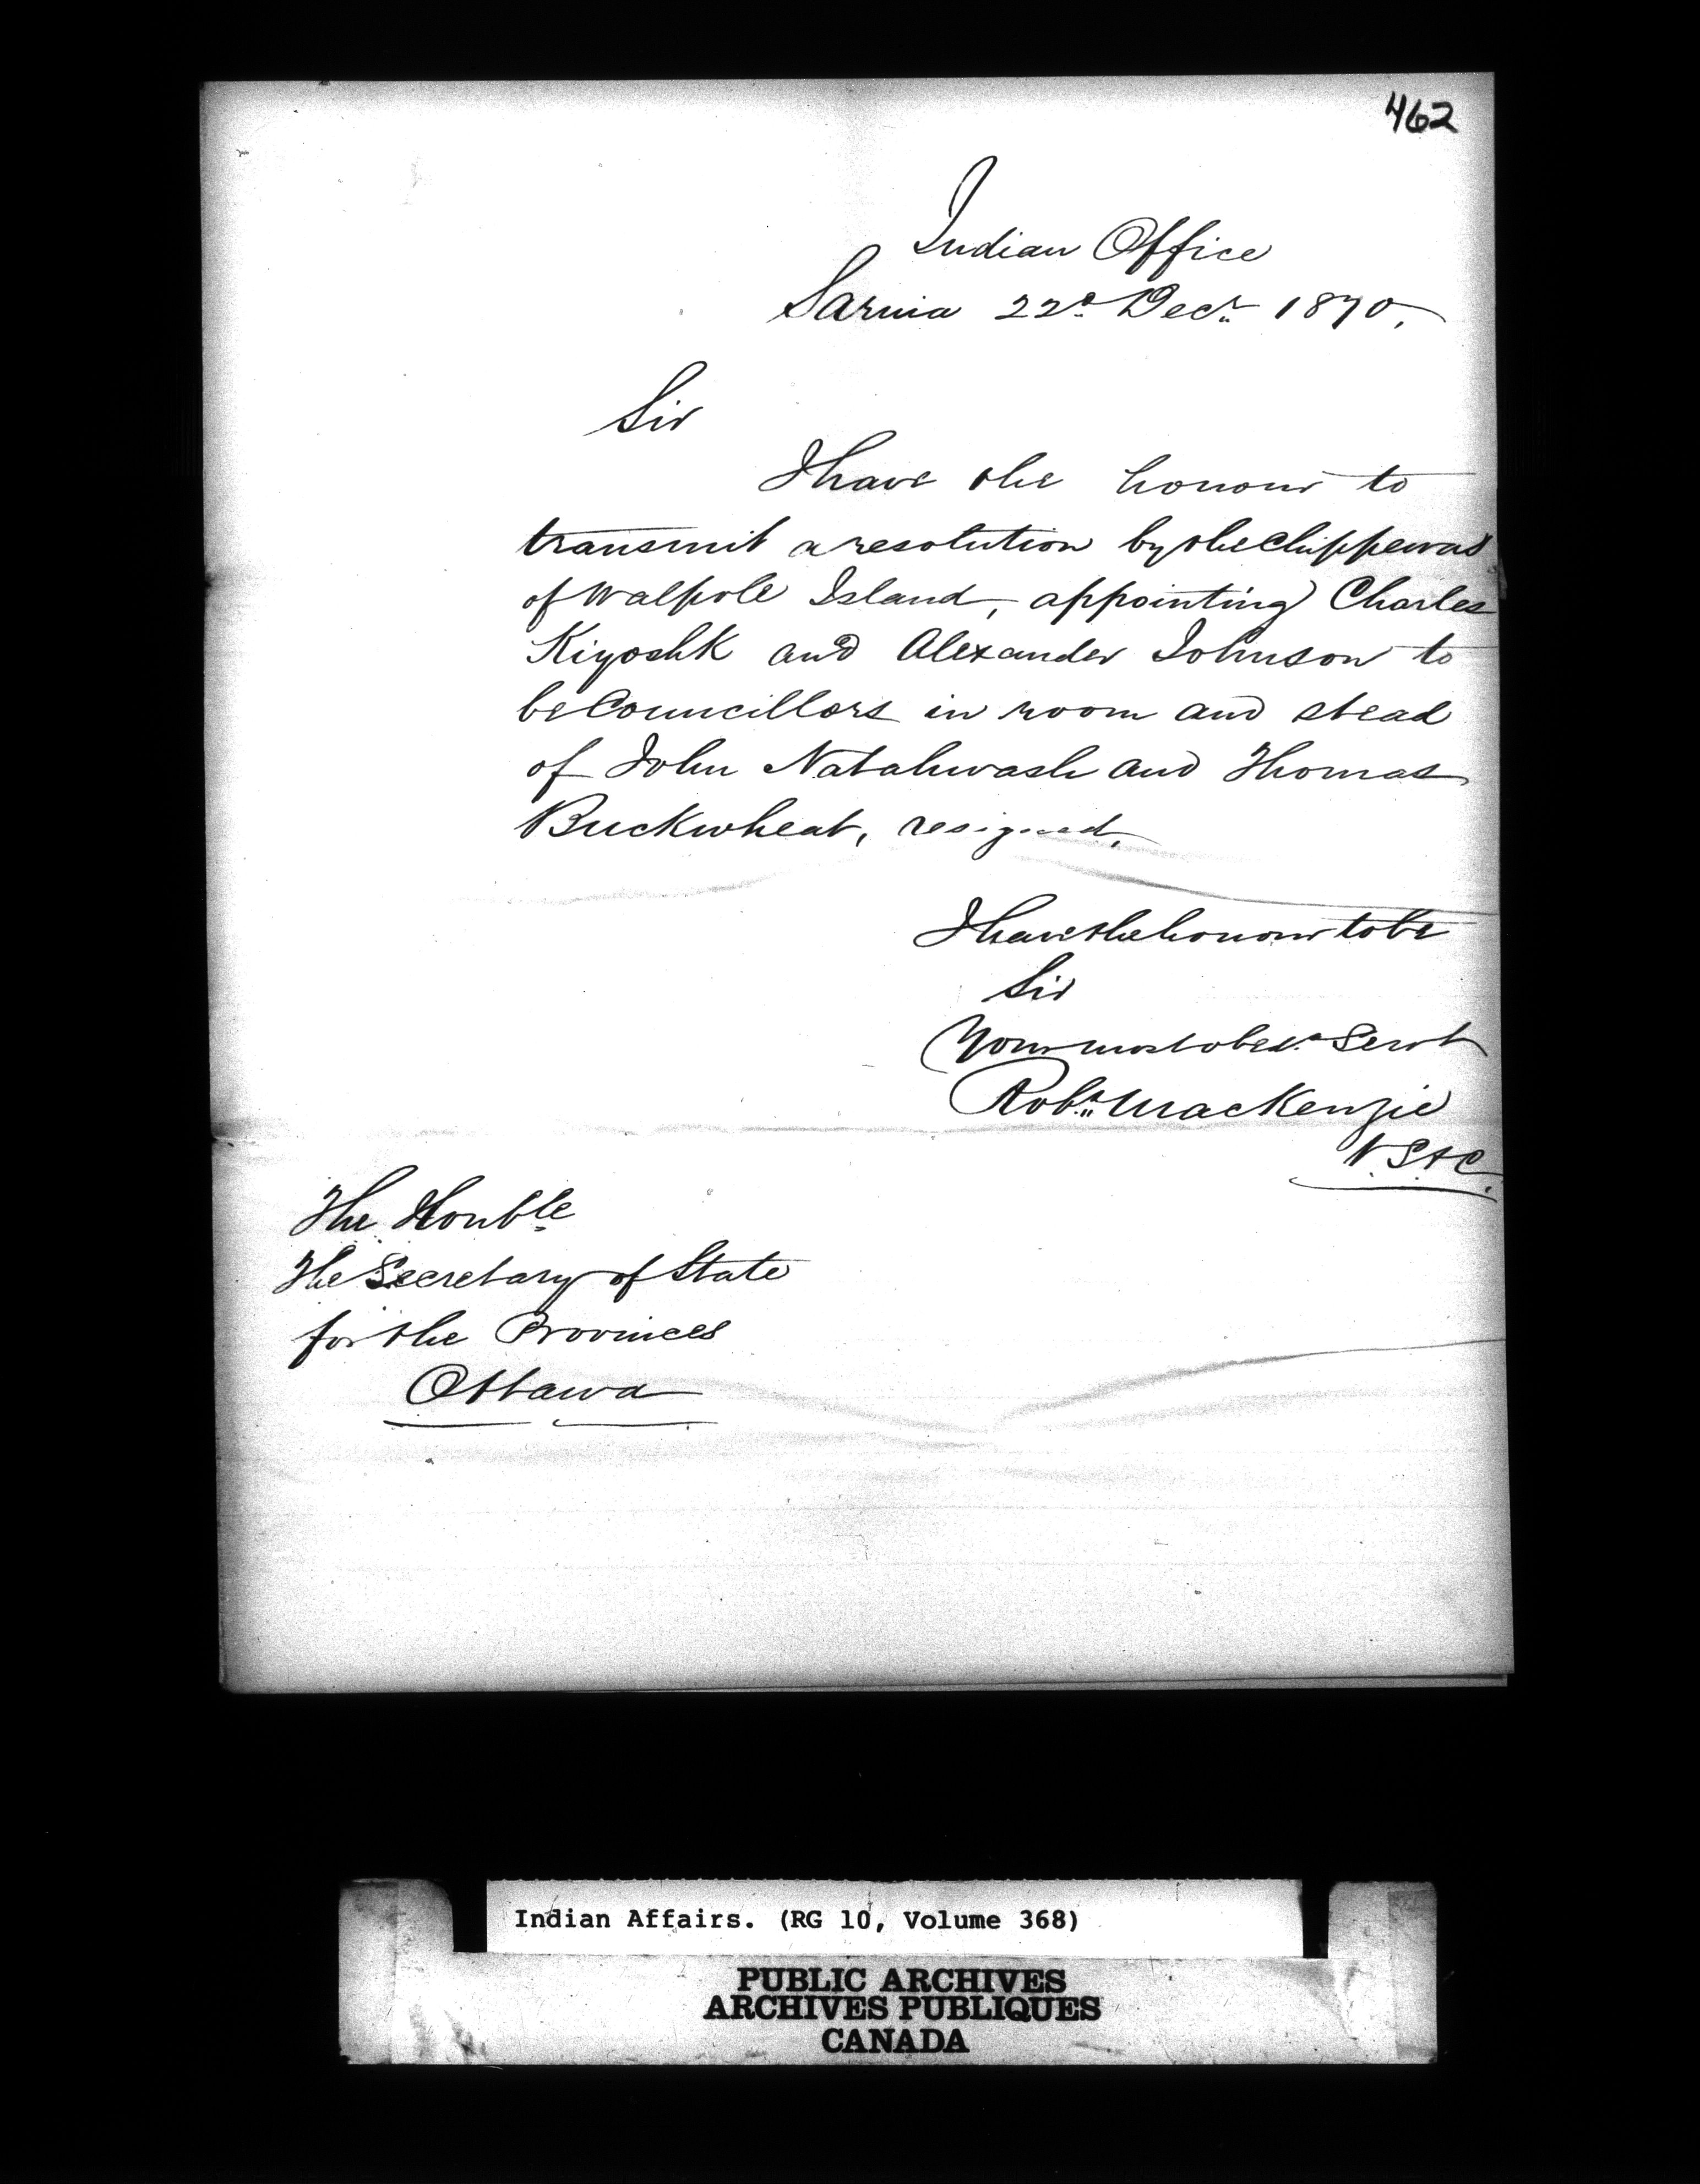 462
Indian Office
Sarnia 22d Decr 1870.
Sir
I have the honour to
transmit a resolution by the Chippewas
of Walpole Island, appointing Charles
Kiyoshk and Alexander Johnson to
be Councillors in room and stead
of John Natahwash and Thomas
Buckwheat, resigned.
I have the honour to be
Sir
Your most obedt Servt
Robt MacKenzie
The Honble
The Secretary of State
for the Provinces
Ottawa
Indian Affairs. (RG 10, Volume 368)
PUBLIC ARCHIVES
ARCHIVES PUBLIQUES
CANADA